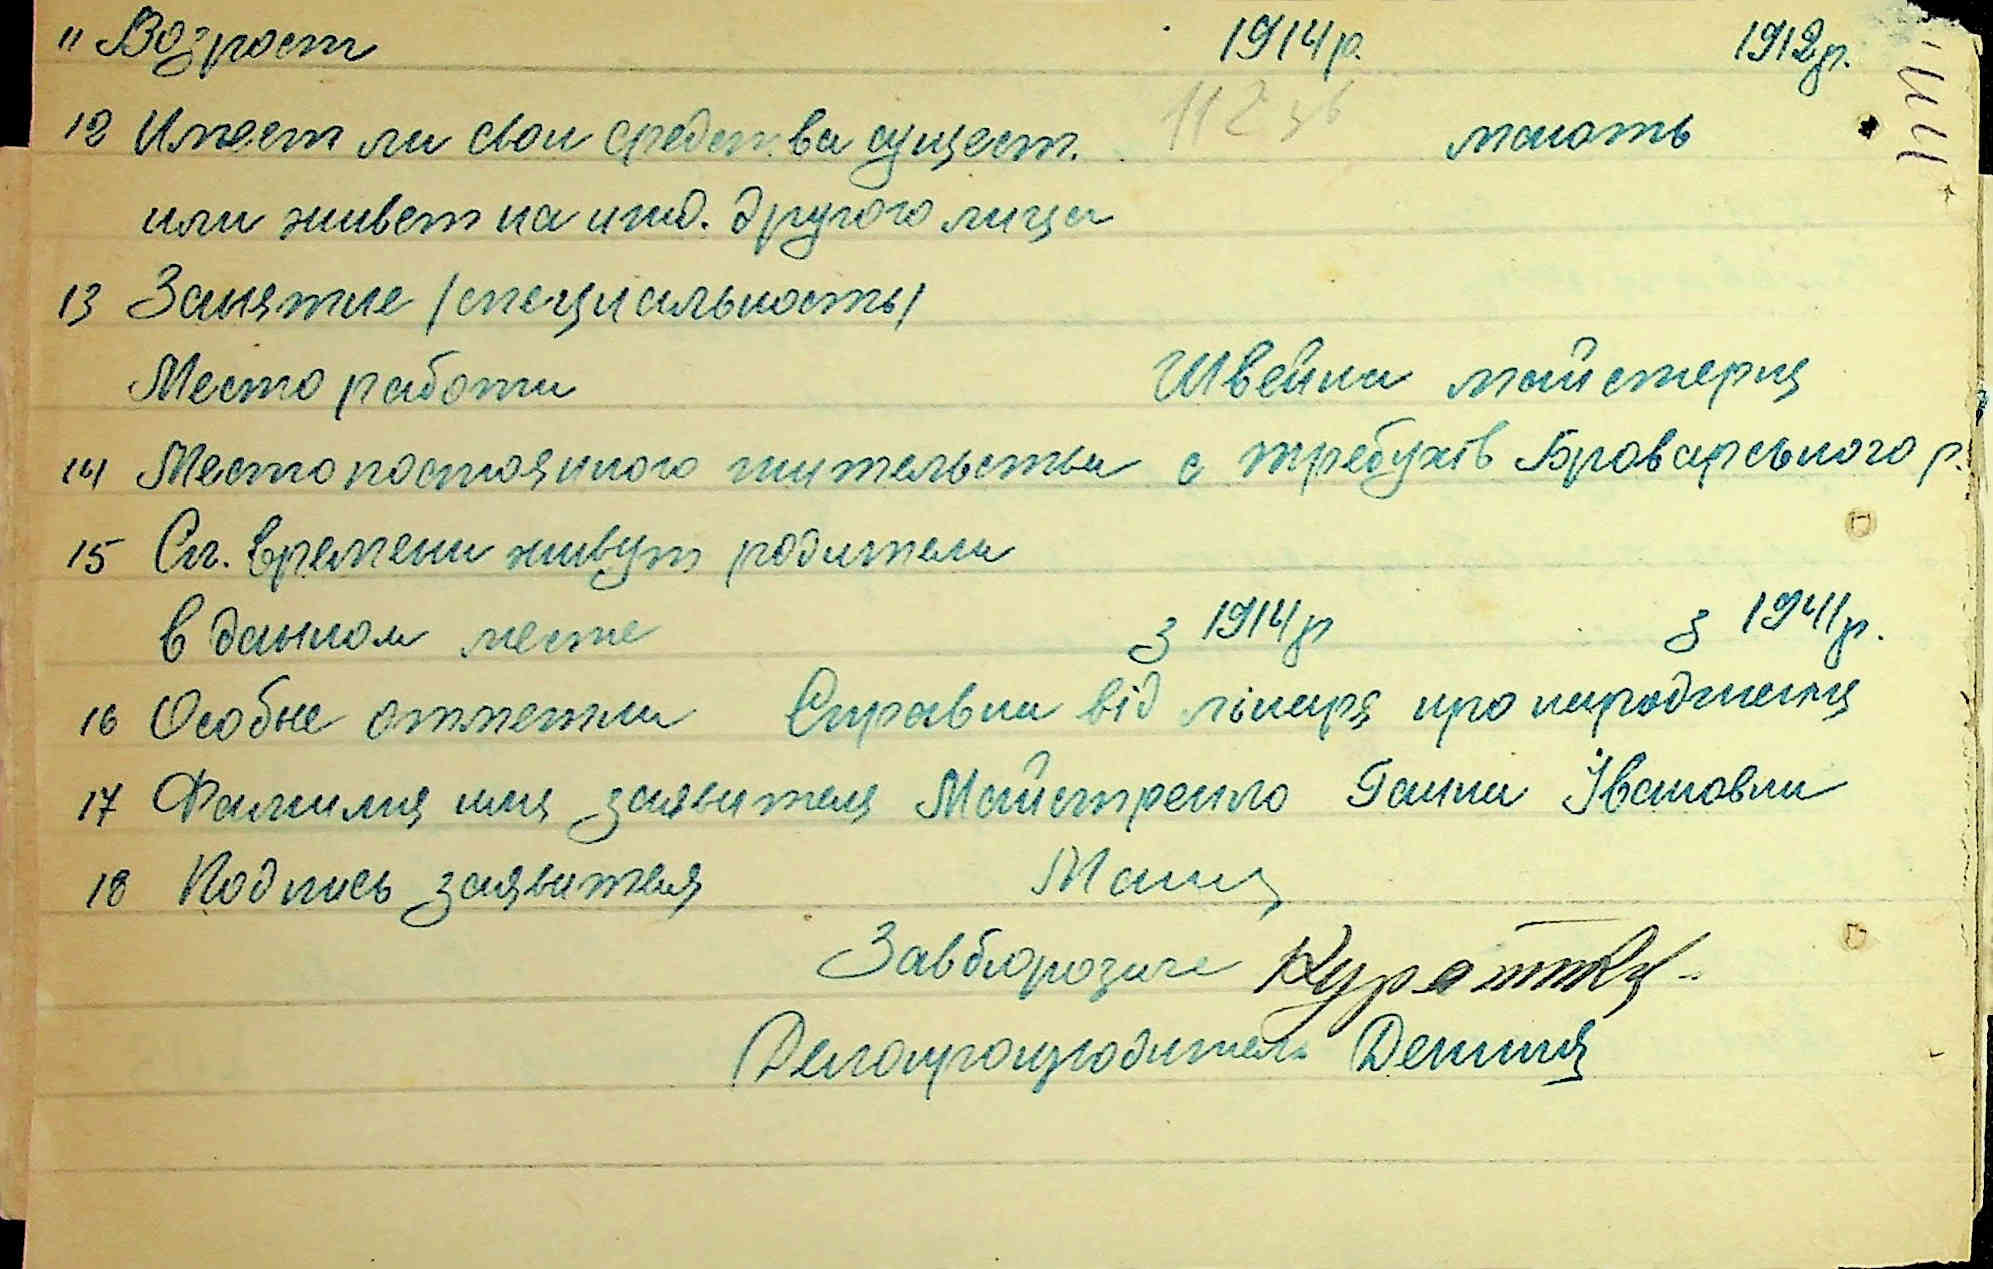 11 Возраст 1914 р. 1912 р.
12 Имеет ли свои средства сущест. мають
или живет на ижд. другого лица
13 Занятие /специальность/
Место работи Швейна майстерня
14 Место постоянного жительства с Требухів Броварського р.
15 Ск. времени живут родители
в данном месте з 1914 р з 1941 р.
16 Особые отметки Справка від лікаря про народження
17 Фамилия имя заявителя Майстренко Ганна Івановна
18 Подпись заявителя
Завбюрозаче
Делопроизводитель